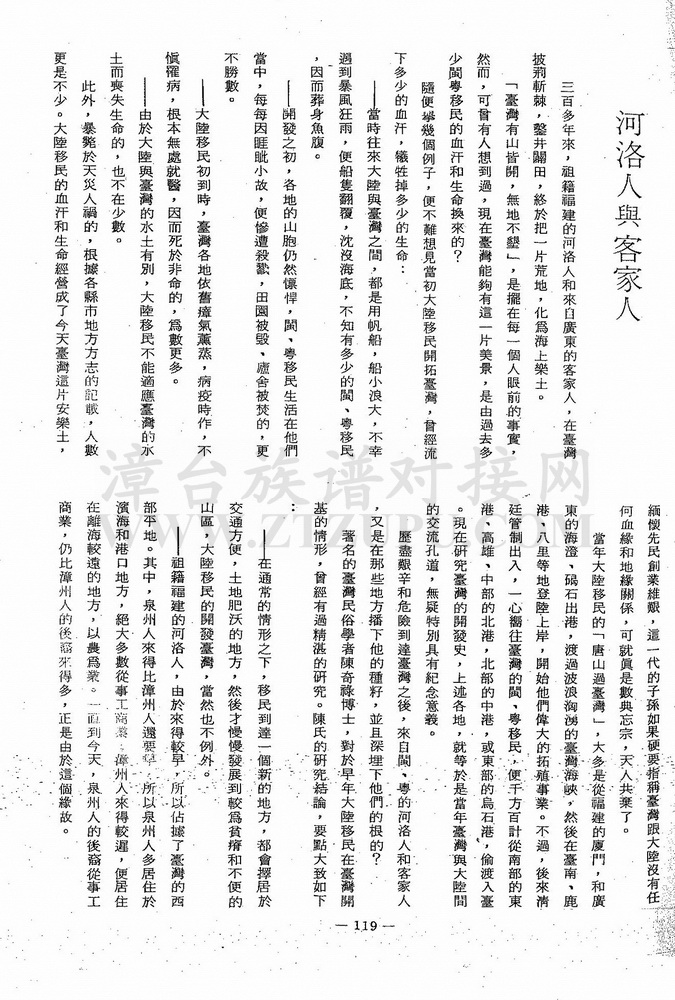 河洛人與客家人
三百多年來，祖籍福建的河洛人和來自廣東的客家人，在臺灣
披荊斬棘，鑿井闢田，終於把一片荒地，化爲海上樂土。
「臺灣有山皆開，無地不墾」，是擺在每一個人眼前的事實，
然而，可曾有人想到過，現在臺灣能夠有這一片美景，是由過去多
少閩粵移民的血汗和生命換來的？
隨便擧幾個例子，便不難想見當初大陸移民開拓臺灣，曾經流
下多少的血汗，犧牲掉多少的生命：
——當時往來大陸與臺灣之間，都是用帆船，船小浪大，不幸
遇到暴風狂雨，便船隻翻覆，沈沒海底，不知有多少的閩、粵移民
，因而葬身魚腹。
——開發之初，各地的山胞仍然慓悍，閩、粵移民生活在他們
當中，每每因睚眦小故，便慘遭殺戮，田園被毁、廬舍被焚的，更
不勝數。
——大陸移民初到時，臺灣各地依舊瘴氣薰蒸，病疫時作，不
愼罹病，根本無處就醫，因而死於非命的，爲數更多。
——由於大陸與臺灣的水土有別，大陸移民不能適應臺灣的水
土而喪失生命的，也不在少數。
此外，暴斃於天災人禍的，根據各縣市地方方志的記載，人數
更是不少。大陸移民的血汗和生命經營成了今天臺灣這片安樂土，
緬懷先民創業維艱，這一代的子孫如果硬要指稱臺灣跟大陸沒有任
何血緣和地緣關係，可就眞是數典忘宗，天人共棄了。
當年大陸移民的「唐山過臺灣」，大多是從福建的廈門，和廣
東的海澄、碣石出港，渡過波浪洶湧的臺灣海峽，然後在臺南、鹿
港、八里等地登陸上岸，開始他們偉大的拓殖事業。不過，後來清
廷管制出入，一心嚮往臺灣的閩、粵移民，便千方百計從南部的東
港、高雄、中部的北港，北部的中港，或東部的烏石港，偷渡入臺
。現在研究臺灣的開發史，上述各地，就等於是當年臺灣與大陸間
的交流孔道，無疑特別具有紀念意義。
歷盡艱辛和危險到達臺灣之後，來自閩、粵的河洛人和客家人
，又是在那些地方播下他的種籽，並且深埋下他們的根的？
著名的臺灣民俗學者陳奇祿博士，對於早年大陸移民在臺灣開
基的情形，曾經有過精湛的研究。陳氏的研究結論，要點大致如下
——在通常的情形之下，移民到達一個新的地方，都會擇居於
交通方便，土地肥沃的地方，然後才慢慢發展到較爲貧瘠和不便的
山區，大陸移民的開發臺灣，當然也不例外。
——祖籍福建的河洛人，由於來得較早，所以佔據了臺灣的西
部平地。其中，泉州人來得比漳州人還要早，所以泉州人多居住於
濱海和港口地方，絕大多數從事工商業，漳州人來得較遲，便居住
在離海較遠的地方，以農爲業。一直到今天，泉州人的後裔從事工
商業，仍比漳州人的後裔來得多，正是由於這個緣故。
— 119 —
漳台族谱对接网
WWW.ZTZUPU.COM